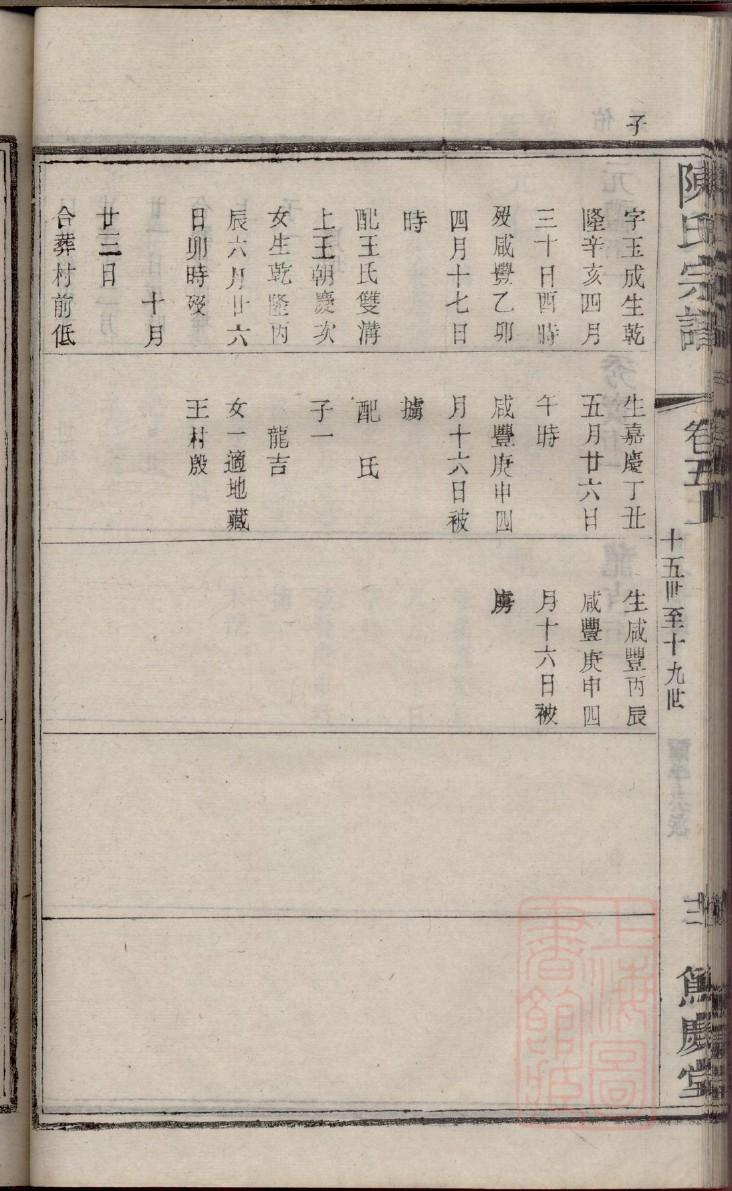 陳氏宗譜
卷五上
十五世至十九世
慶堂
子
字玉成生乾
隆辛亥四月
三十日酉時
歿咸豐乙卯
四月十七日
時
配王氏雙溝
上王朝慶次
女生乾隆丙
辰六月廿六
日卯時歿
十月
廿三日
合葬村前低
生嘉慶丁丑
五月廿六日
午時
咸豐庚申四
月十六日被
擄
配 氏
子一
龍吉
女一適地藏
王村殷
生咸豐丙辰
咸豐庚申四
月十六日被
虜
上海圖書館藏